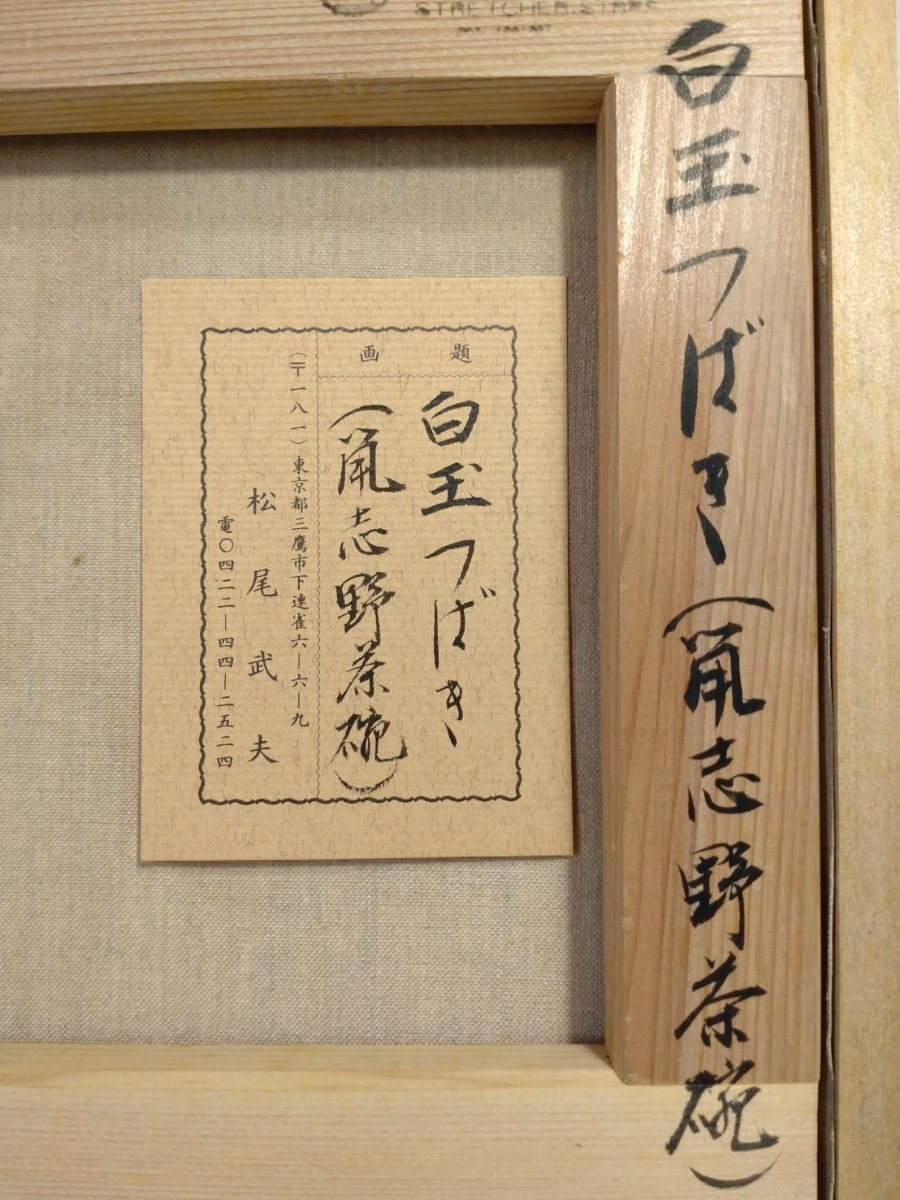 STRETCHER.STARS
白玉つばき(鼠志野茶碗)
画題
白玉つばき
(鼠志野茶碗)
(〒一八一)東京都三鷹市下連雀六ー六ー九
松尾武夫
電〇四二二ー四四ー二五二四